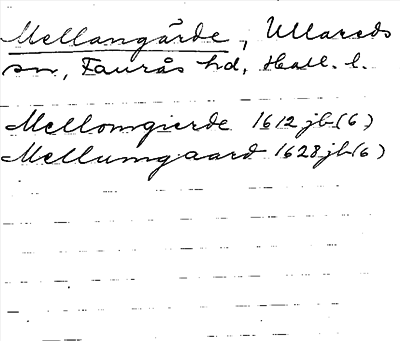 Mellangärde, Ullareds
sn, Faurås hd, Hall. l.
Mellomgierde 1612 jb(6)
Mellumgaard 1628 jb(6)